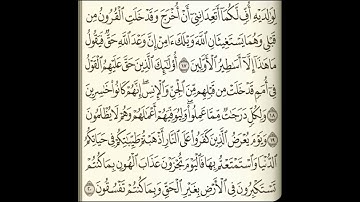 لِوَٰلِدَيْهِ أُفٍّ لَّكُمَآ أَتَعِدَانِنِىٓ أَنْ أُخْرَجَ وَقَدْ خَلَتِ ٱلْقُرُونُ مِن
قَبْلِى وَهُمَا يَسْتَغِيثَانِ ٱللَّهَ وَيْلَكَ ءَامِنْ إِنَّ وَعْدَ ٱللَّهِ حَقٌّ فَيَقُولُ
مَا هَٰذَآ إِلَّآ أَسَٰطِيرُ ٱلْأَوَّلِينَ ١٧ أُو۟لَٰٓئِكَ ٱلَّذِينَ حَقَّ عَلَيْهِمُ ٱلْقَوْلُ
فِىٓ أُمَمٍ قَدْ خَلَتْ مِن قَبْلِهِم مِّنَ ٱلْجِنِّ وَٱلْإِنسِ إِنَّهُمْ كَانُوا۟ خَٰسِرِينَ
١٨ وَلِكُلٍّ دَرَجَٰتٌ مِّمَّا عَمِلُوا۟ وَلِيُوَفِّيَهُمْ أَعْمَٰلَهُمْ وَهُمْ لَا يُظْلَمُونَ
١٩ وَيَوْمَ يُعْرَضُ ٱلَّذِينَ كَفَرُوا۟ عَلَى ٱلنَّارِ أَذْهَبْتُمْ طَيِّبَٰتِكُمْ فِى حَيَاتِكُمُ
ٱلدُّنْيَا وَٱسْتَمْتَعْتُم بِهَا فَٱلْيَوْمَ تُجْزَوْنَ عَذَابَ ٱلْهُونِ بِمَا كُنتُمْ
تَسْتَكْبِرُونَ فِى ٱلْأَرْضِ بِغَيْرِ ٱلْحَقِّ وَبِمَا كُنتُمْ تَفْسُقُونَ ٢٠